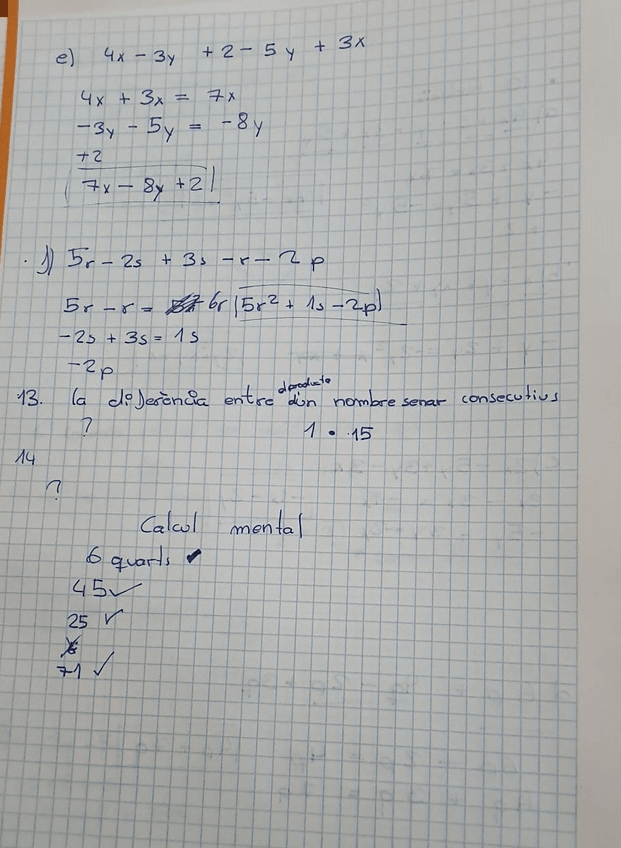 e) 4x - 3y + 2 - 5y + 3x
4x + 3x = 7x
-3y - 5y = -8y
+2
7x - 8y + 2
f) 5r - 2s + 3s - r - 2p
5r - r = 6r 5r² + 1s - 2p
-2s + 3s = 1s
-2p
13. la diferència entre d'un producte nombre senar consecutius
? 1 • 15
14
?
Calcul mental
6 quarts ✓
45 ✓
25 ✓
71 ✓